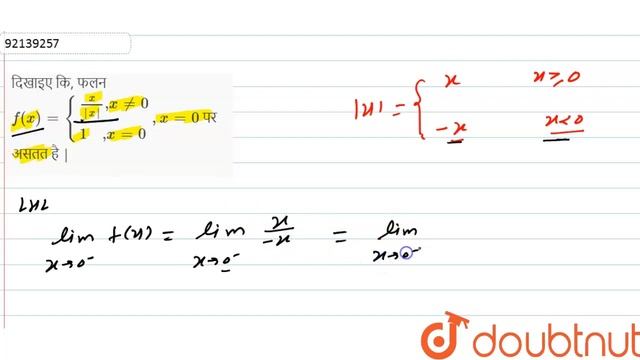 92139257
दिखाइए कि, फलन
f(x) = { x/|x| , x ≠ 0
1 , x = 0 , x = 0 पर
असतत है |
|x| = { x x ≥ 0
-x x < 0
LHL
lim x→0⁻ f(x) = lim x→0⁻ x/-x = lim x→0⁻
doubtnut